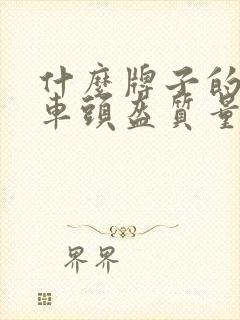 什麼牌子的
車頭盔質量
界界